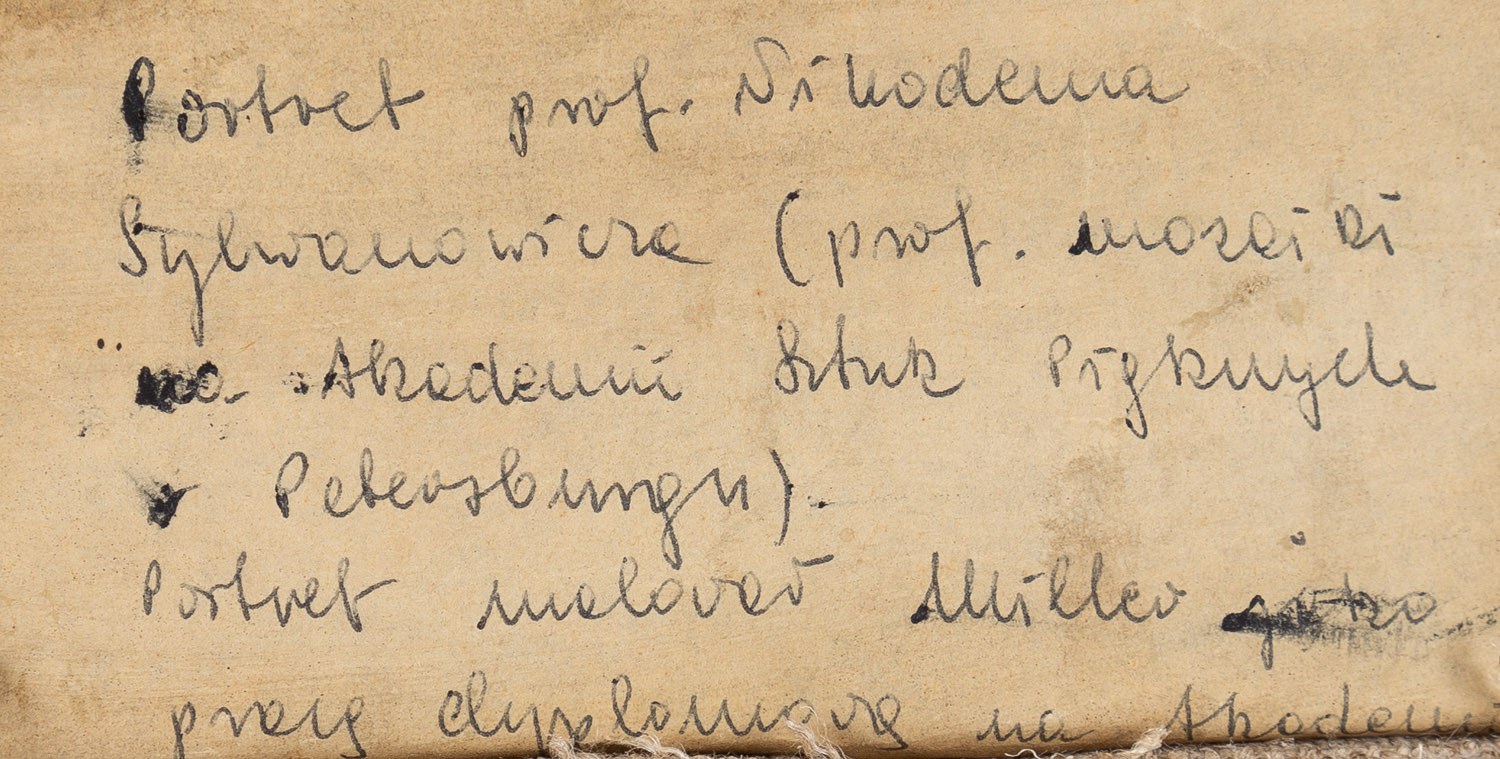 Portret prof. Nikodema
Sylwanowicza (prof. mozaiki
na Akademii Sztuk Pięknych
w Petersburgu).
Portret malował Miller jako
pracę dyplomową na Akademii